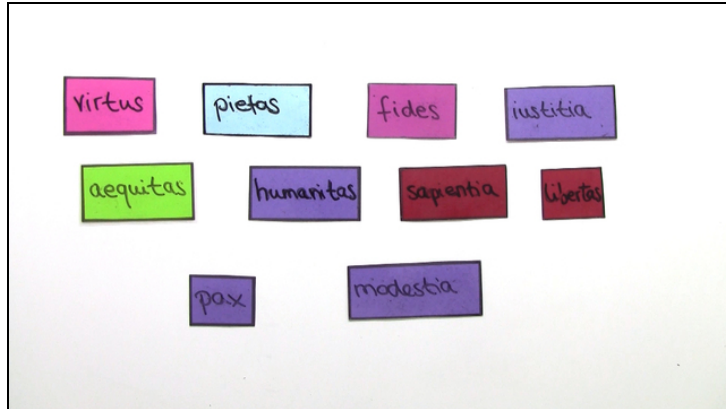 virtus pietas fides iustitia
aequitas humanitas sapientia libertas
pax modestia